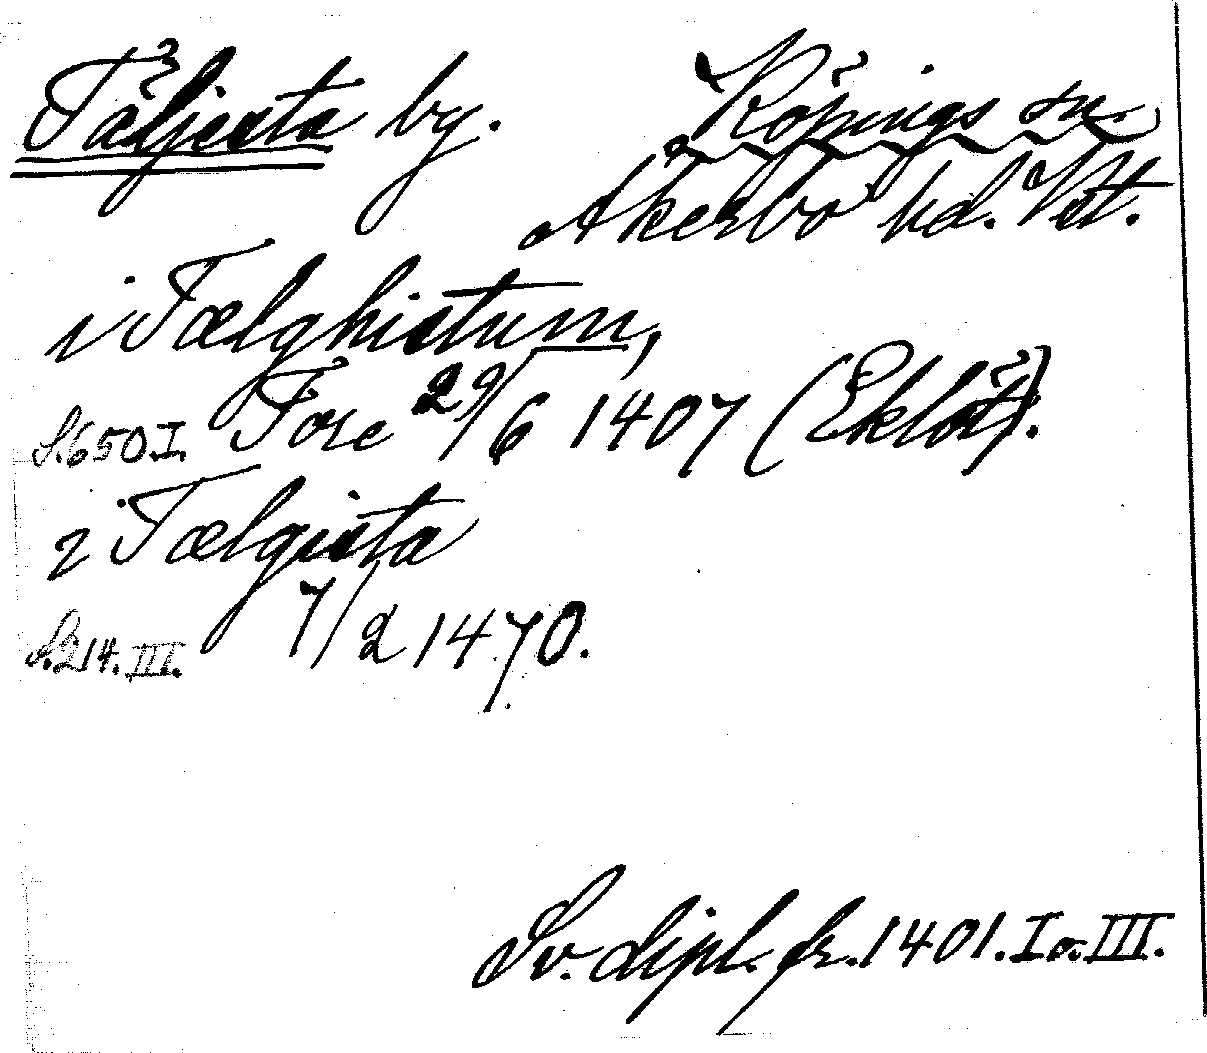 Täljesta by. Köpings sn.
Åkerbo hd. Vstm.
i Tælghistum,
S. 650. I. Tore 29/6 1407 (Eklöf).
i Tælgista
S. 214. III. 7/2 1470.
Sv. dipl. fr. 1401. I o. III.